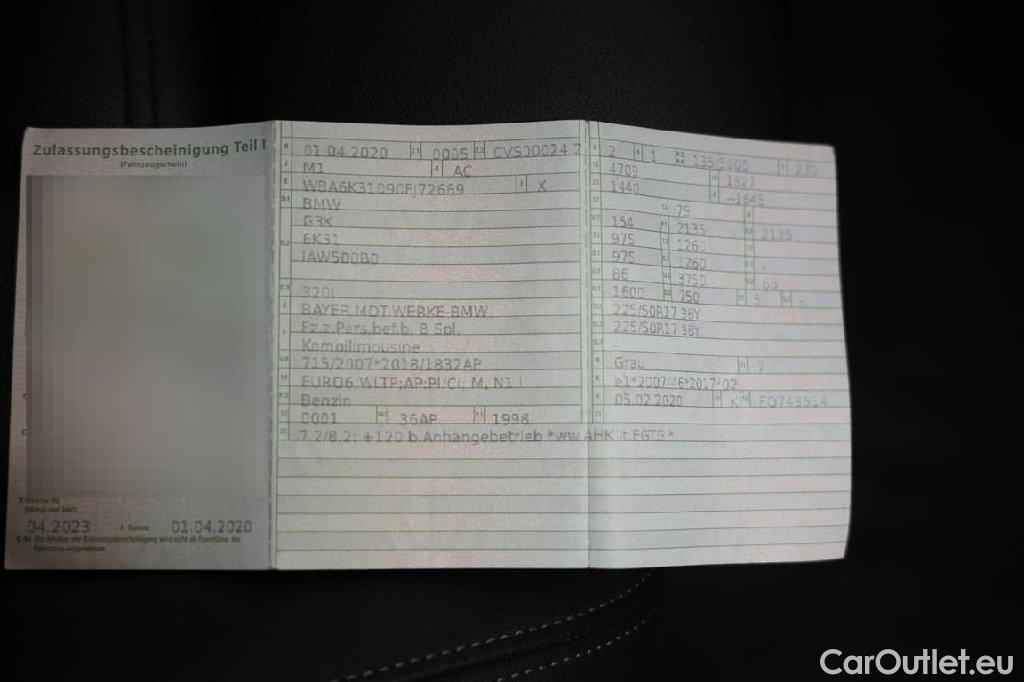 Zulassungsbescheinigung Teil I
(Fahrzeugschein)
04.2023
01.04.2020
01.04.2020 2.1 0005 2.2 CVS00024 2
M1 4 AC
WBA6K31090FJ72669 3 X
BMW
G3K
6K31
IAW500B0
320I
BAYER.MOT.WERKE-BMW
Fz.z.Pers.bef.b. 8 Spl.
Kombilimousine
715/2007*2018/1832AP
EURO6,WLTP;AP;PI/CI; M, N1 I
Benzin
0001 36AP 1998
7.2/8.2: +120 b.Anhängebetrieb *ww.AHK
2 1 135/5000
4709 1827
1440
75
154 2135 2135
975 1260
975 1260
86 3750 55
1600 750 5
225/50R17 98Y
225/50R17 98Y
Grau 7
e1*2007/46*2017*02
05.02.2020 K
CarOutlet.eu